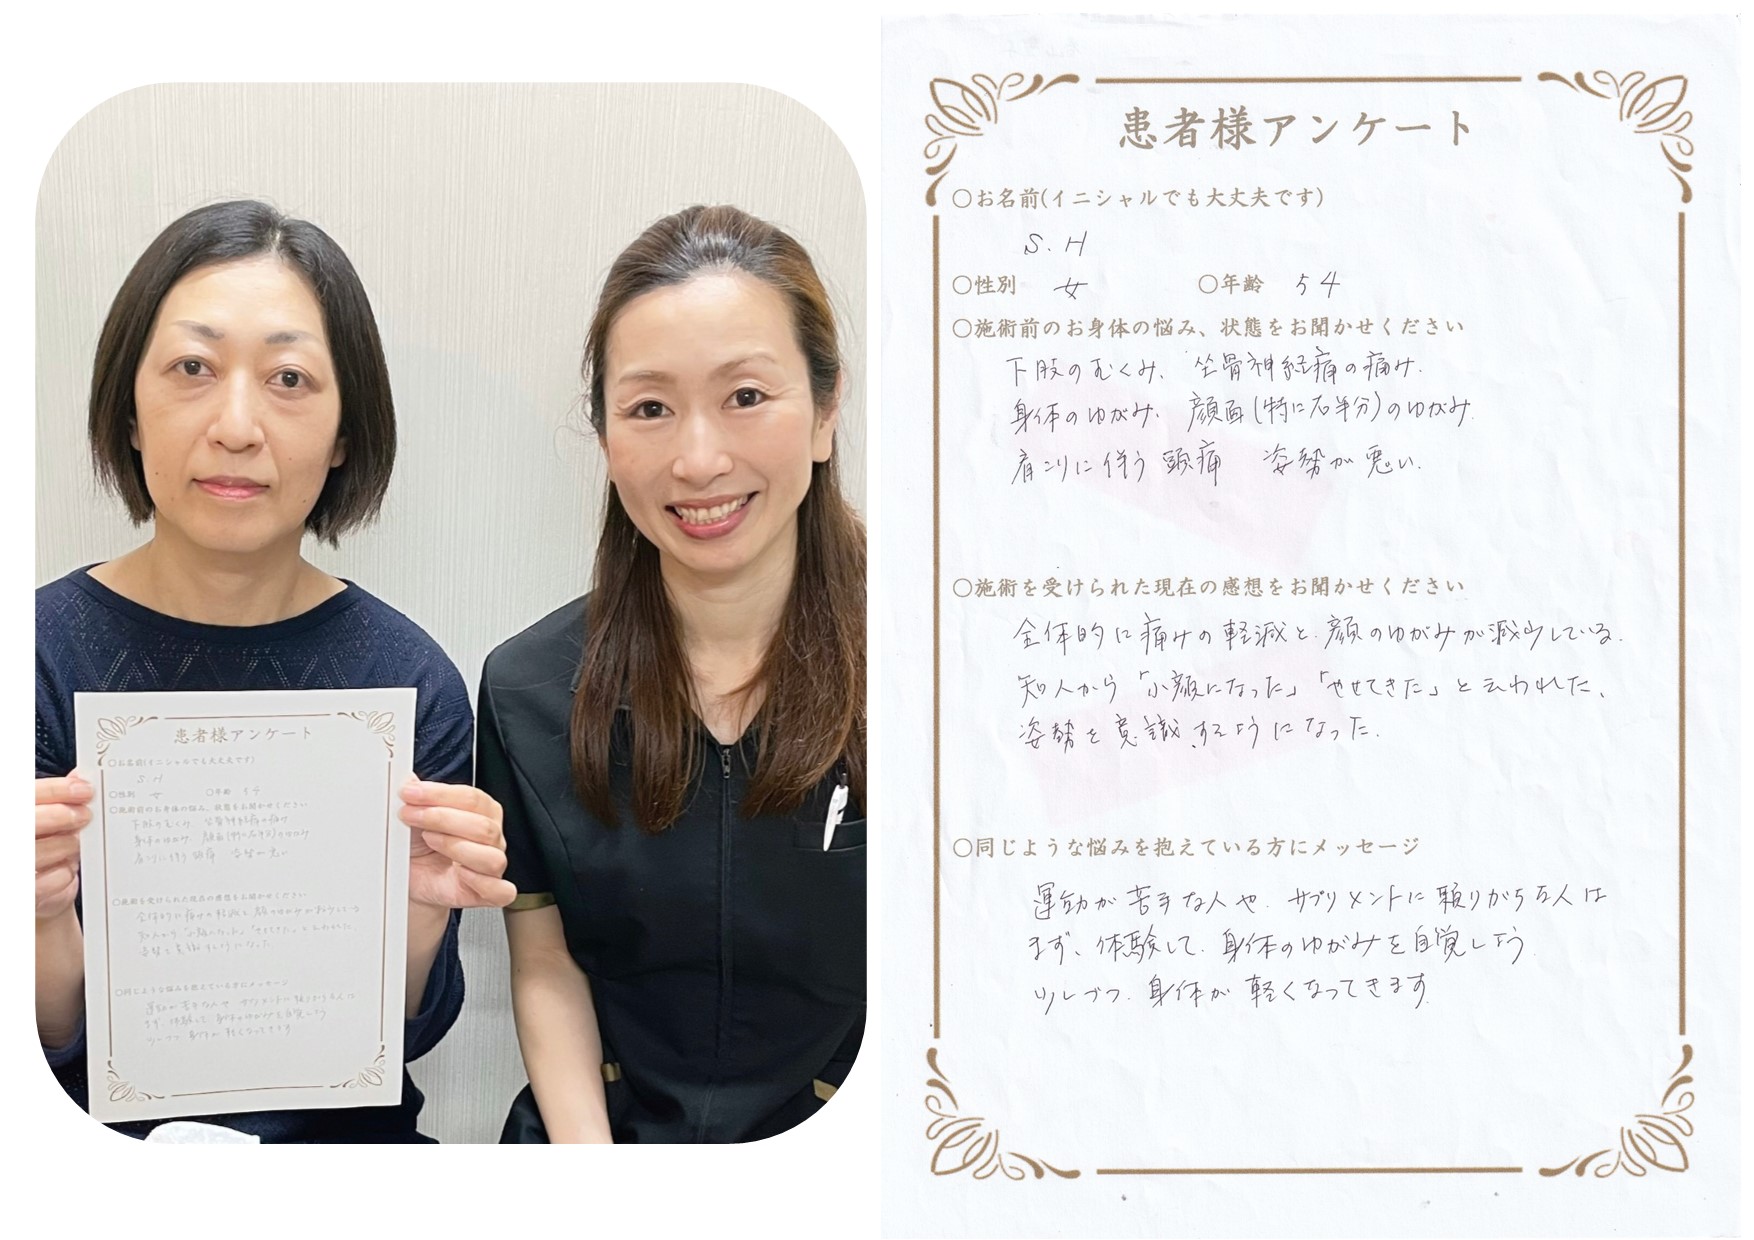 患者様アンケート
○お名前(イニシャルでも大丈夫です)
S.H
○性別 女 ○年齢 54
○施術前のお身体の悩み、状態をお聞かせください
下肢のむくみ、坐骨神経痛の痛み、
身体のゆがみ、顔面(特に右半分)のゆがみ、
肩こりに伴う頭痛 姿勢が悪い、
○施術を受けられた現在の感想をお聞かせください
全体的に痛みの軽減と、顔のゆがみが減少している。
知人から「小顔になった」「やせてきた」と云われた、
姿勢を意識するようになった、
○同じような悩みを抱えている方にメッセージ
運動が苦手な人や、サプリメントに頼りがちな人は
まず、体験して、身体のゆがみを自覚しよう
少しづつ、身体が軽くなってきます
患者様アンケート
○お名前(イニシャルでも大丈夫です)
S.H
○性別 女 ○年齢 54
○施術前のお身体の悩み、状態をお聞かせください
下肢のむくみ、坐骨神経痛の痛み、
身体のゆがみ、顔面(特に右半分)のゆがみ、
肩こりに伴う頭痛 姿勢が悪い、
○施術を受けられた現在の感想をお聞かせください
全体的に痛みの軽減と、顔のゆがみが減少している。
知人から「小顔になった」「やせてきた」と云われた、
姿勢を意識するようになった、
○同じような悩みを抱えている方にメッセージ
運動が苦手な人や、サプリメントに頼りがちな人は
まず、体験して、身体のゆがみを自覚しよう
少しづつ、身体が軽くなってきます